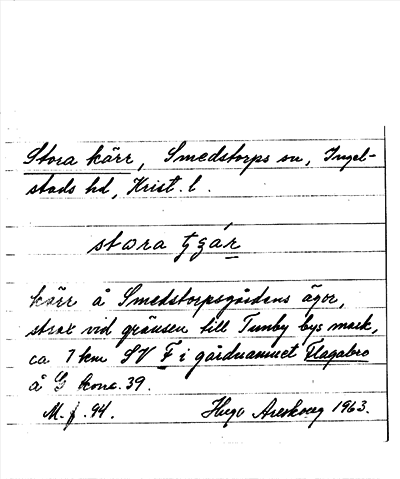 Stora kärr, Smedstorps sn, Ingel-
stads hd, Krist. l.
stora
kärr å Smedstorpsgårdens ägor,
strax vid gränsen till Tunby bys mark,
ca 1 km SV F i gårdnamnet Flagabro
å G kona. 39.
M. f. 94. Hugo Areskoug 1963.